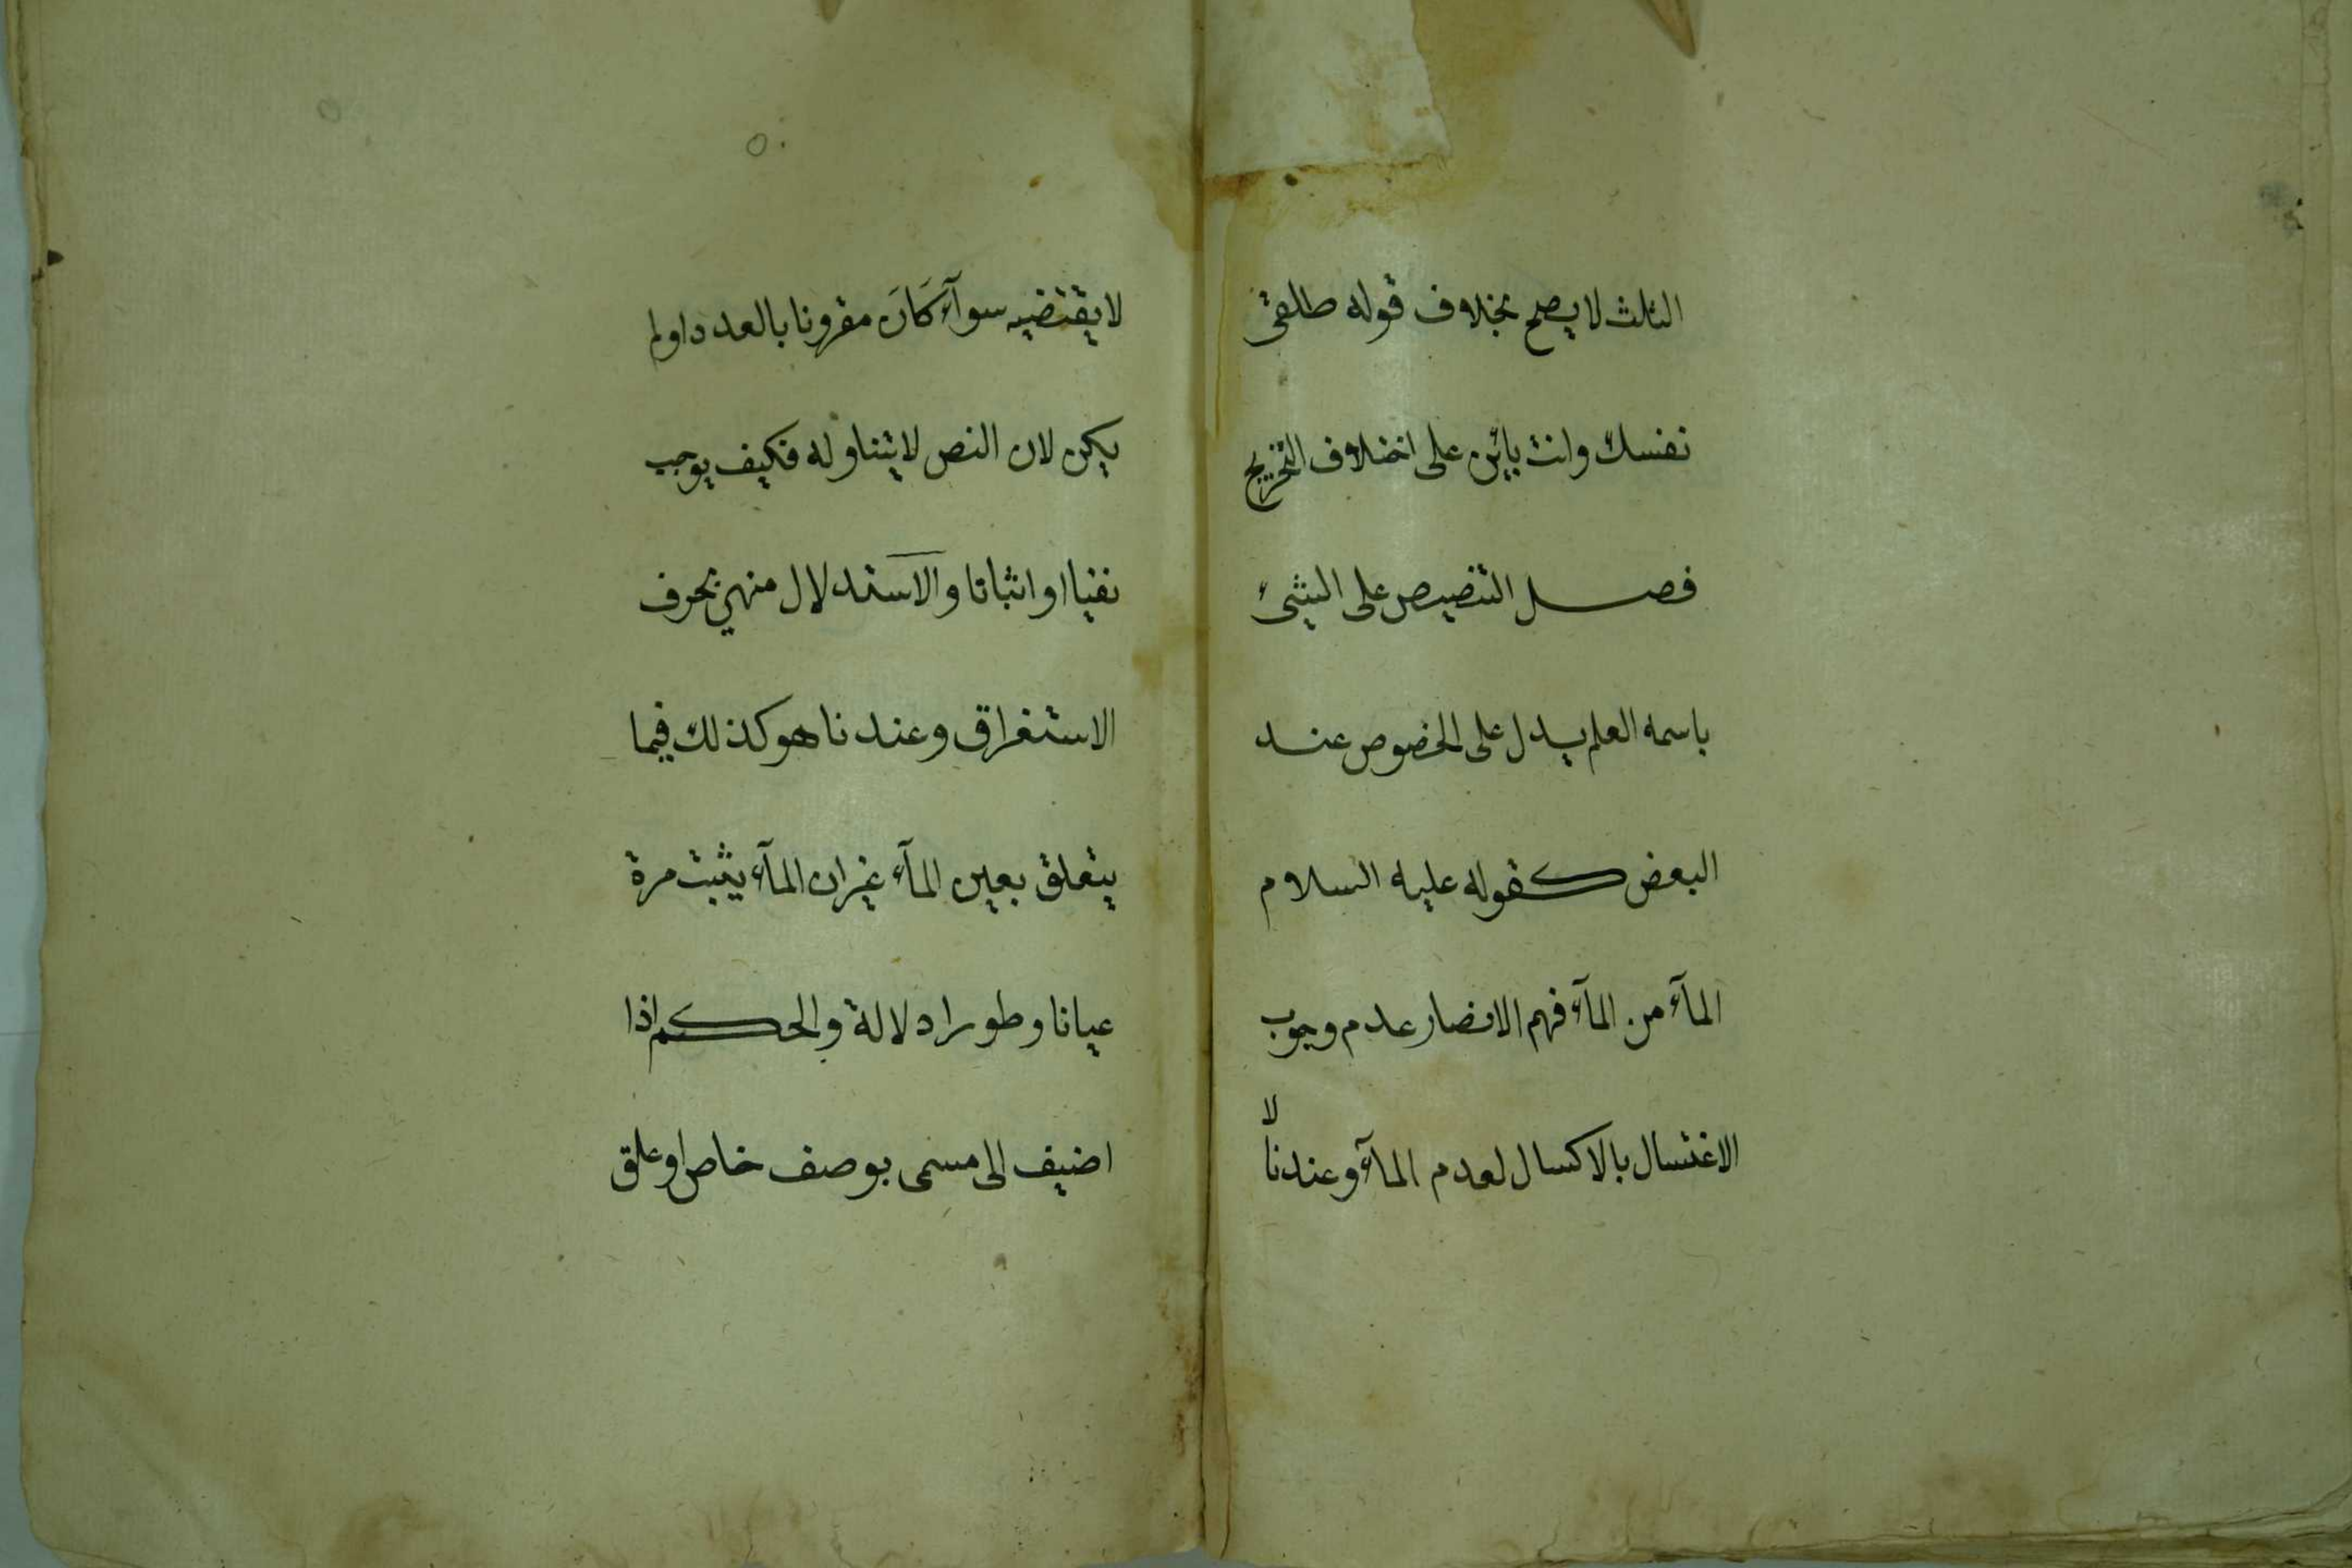 الثلث لا يصح بخلاف قوله طلقى
نفسك وانت بائن على اختلاف التخريج
فصل التنصيص على الشيئ
باسمه العلم يدل على الخصوص عند
البعض كقوله عليه السلام
المآء من المآء فهم الانصار عدم وجوب
الاغتسال بالاكسال لعدم المآء وعندنا
لا
لا يقتضيه سوآء كَانَ مقرونا بالعدد اولم
يكن لان النص لا يتناوله فكيف يوجب
نفيا او اثباتا والاستدلال منهم بحرف
الاستغراق وعندنا هو كذلك فيما
يتعلق بعين المآء غير ان المآء يثبت مرة
عيانا وطورا دلالة والحكم اذا
اضيف الى مسمى بوصف خاص او علق